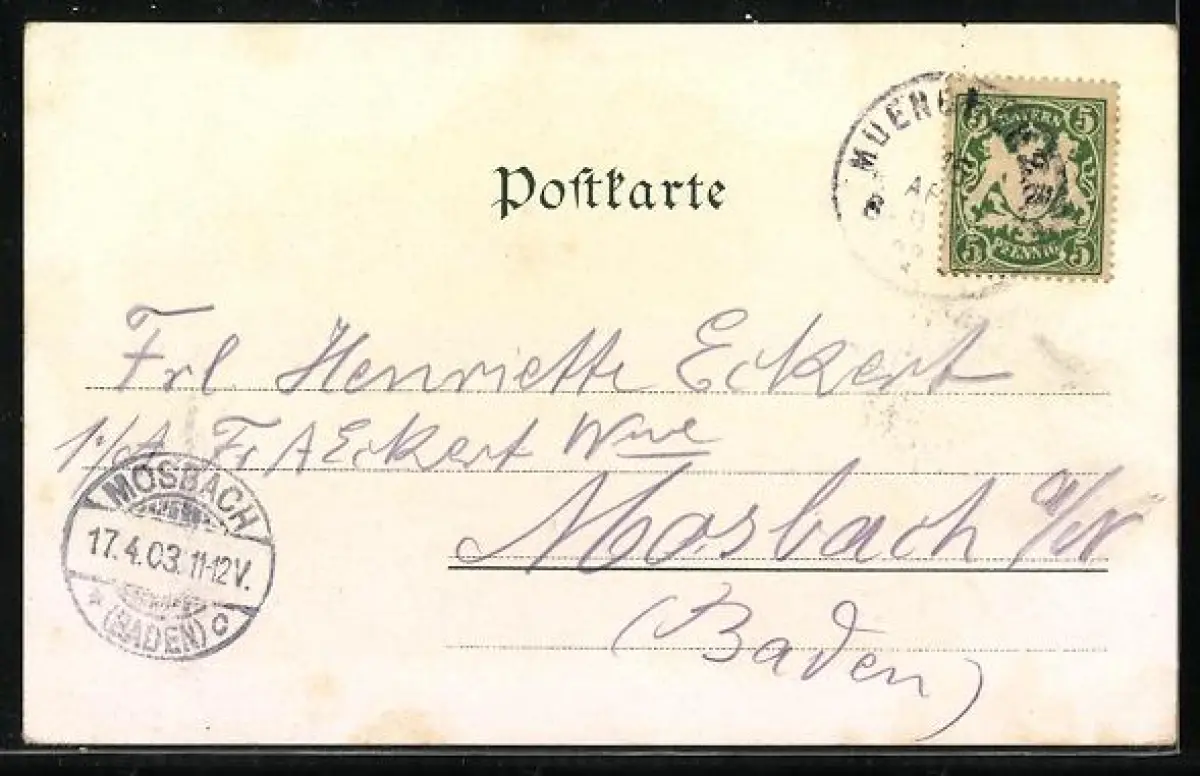 Postkarte
MUENCH
8
AP
5 5
BAYERN
5 PFENNIG 5
Frl Henriette Eckert
Fr A Eckert Wwe
Mosbach a/N
(Baden)
MOSBACH
17.4.03. 11-12V.
* (BADEN) c